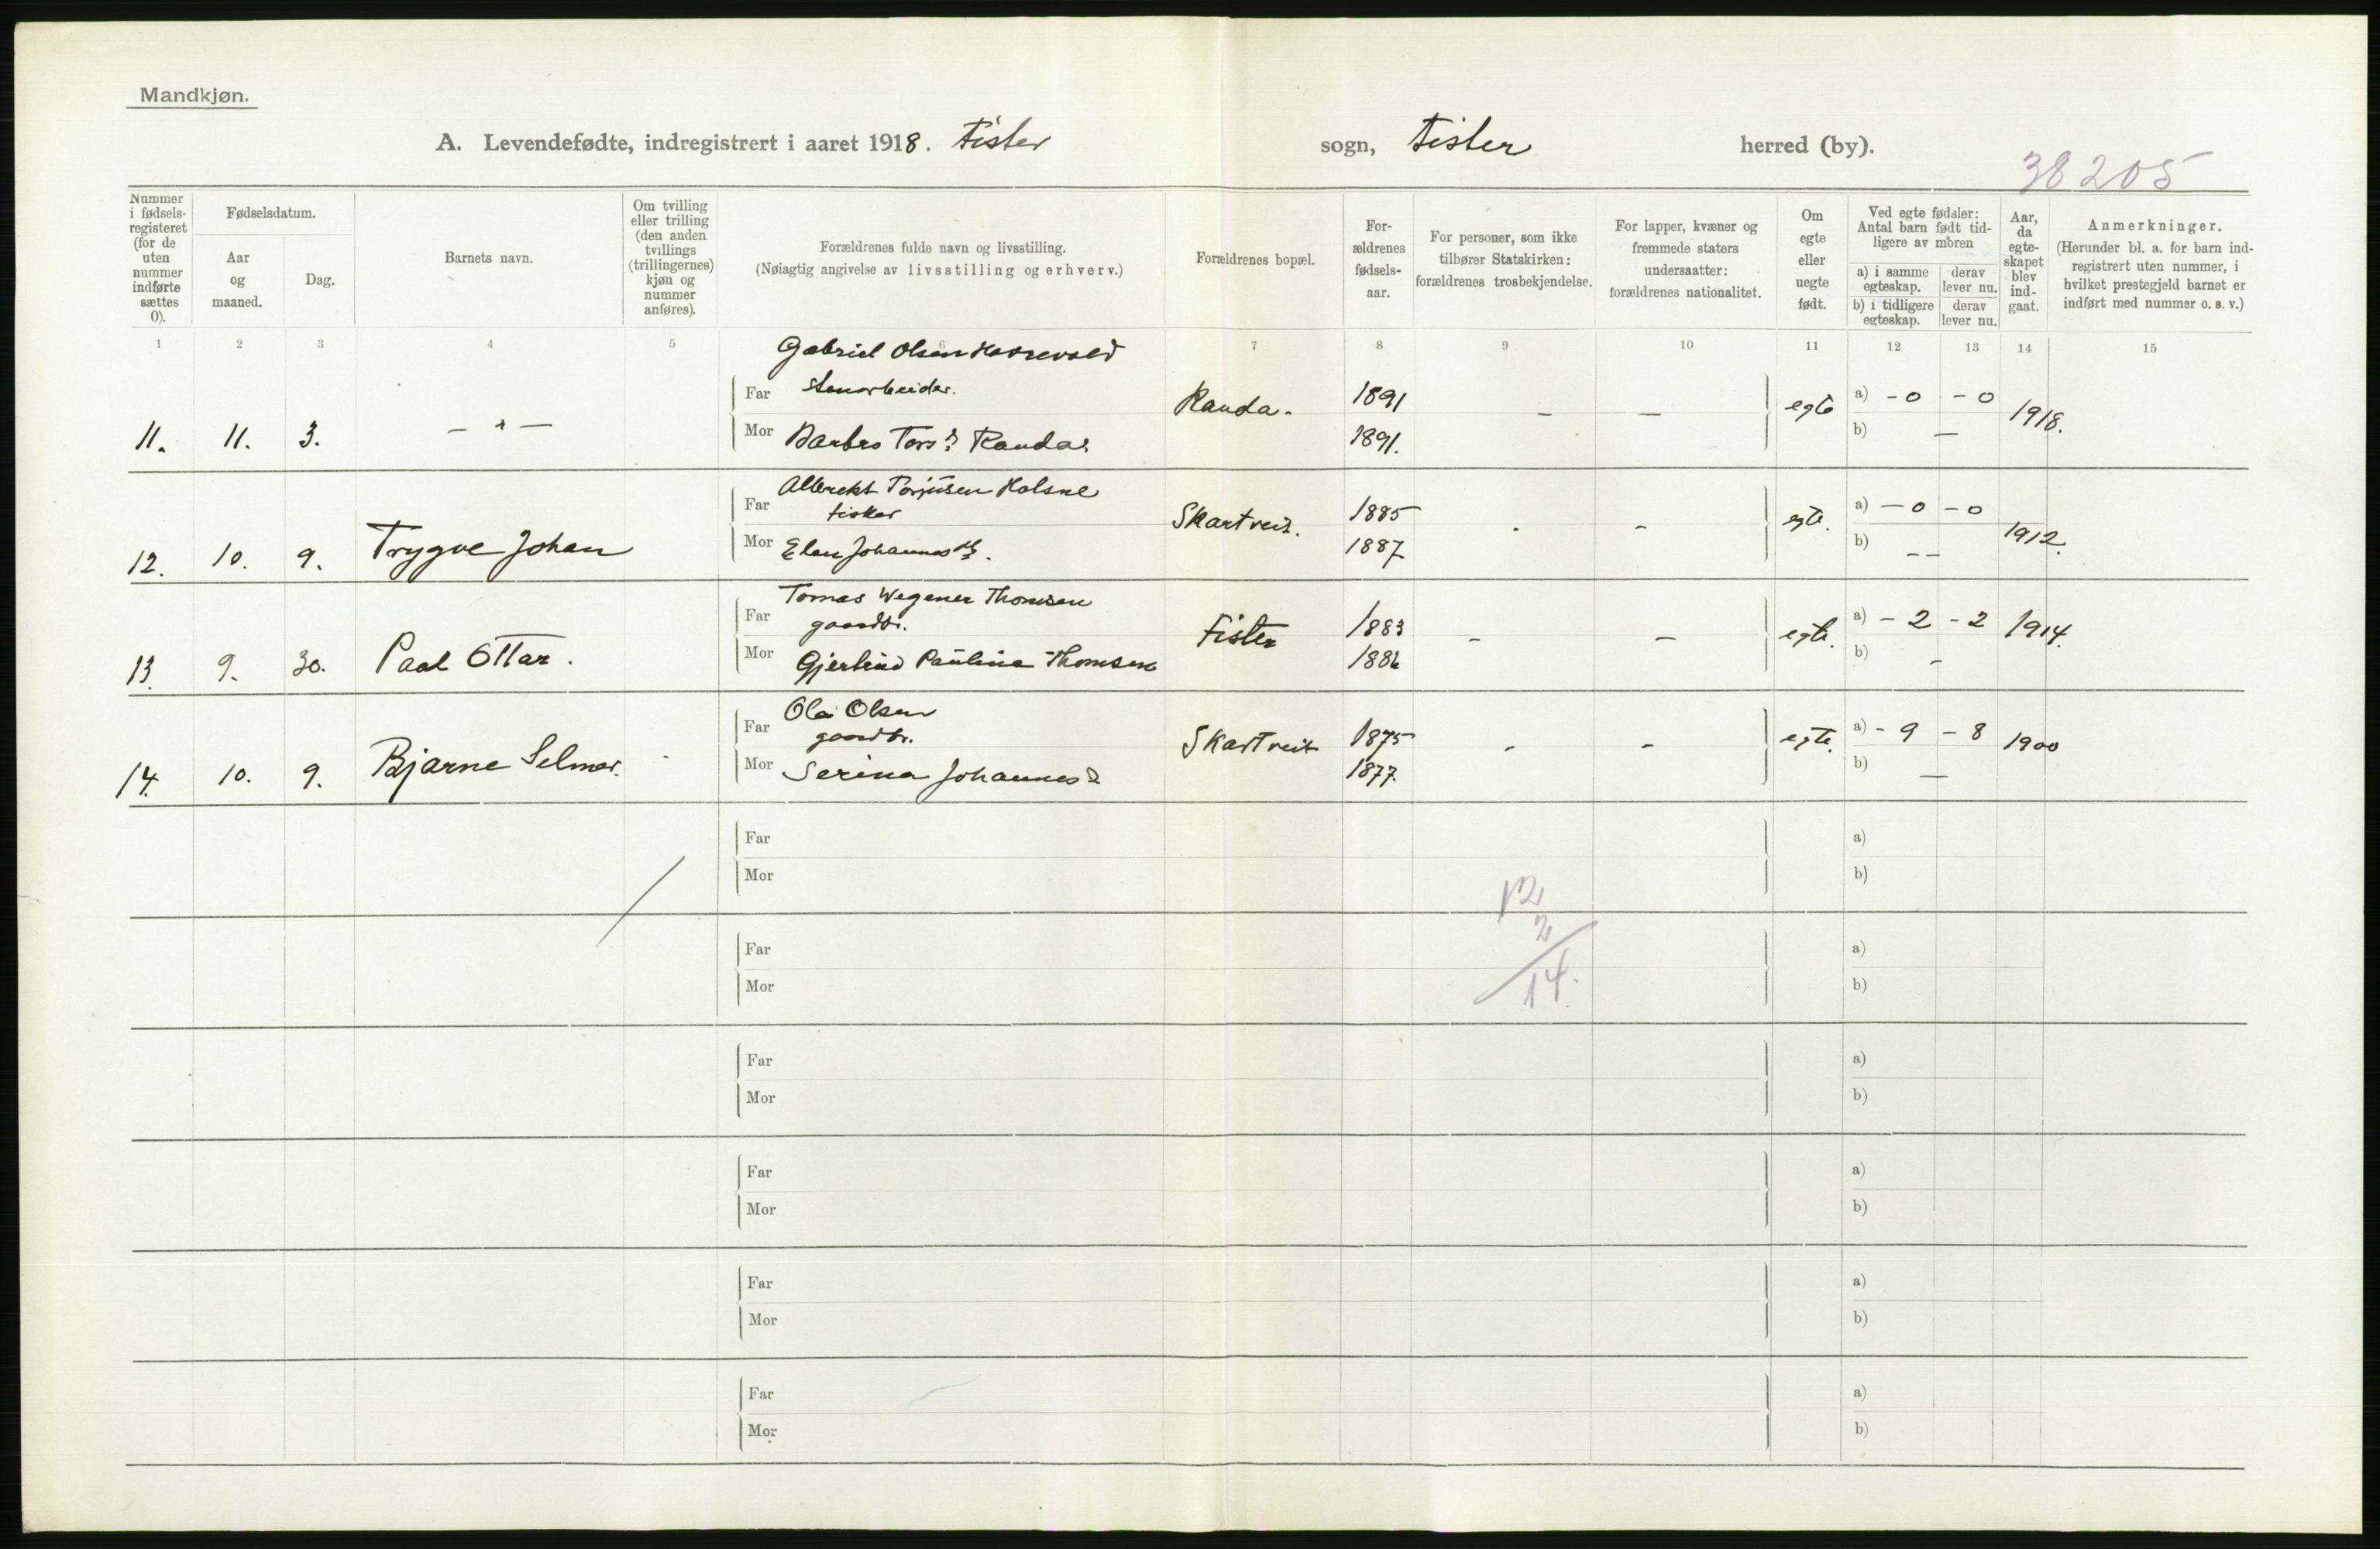 Mandkjøn.
A. Levendefødte, indregistrert i aaret 1918. Fister sogn, Fister herred (by).
38205
Nummer i fødselsregisteret (for de uten nummer indførte sættes 0).
Fødselsdatum.
Aar og maaned.
Dag.
Barnets navn.
Om tvilling eller trilling (den anden tvillings (trillingernes) kjøn og nummer anføres).
Forældrenes fulde navn og livsstilling.
(Nøiagtig angivelse av livsstilling og erhverv.)
Forældrenes bopæl.
For-ældrenes fødsels-aar.
For personer, som ikke tilhører Statskirken: forældrenes trosbekjendelse.
For lapper, kvæner og fremmede staters undersaatter: forældrenes nationalitet.
Om egte eller uegte født.
Ved egte fødsler: Antal barn født tid-ligere av moren
a) i samme egteskap.
derav lever nu.
b) i tidligere egteskap.
derav lever nu.
Aar, da egte-skapet blev ind-gaat.
Anmerkninger.
(Herunder bl. a. for barn ind-registrert uten nummer, i hvilket prestegjeld barnet er indført med nummer o. s. v.)
1 2 3 4 5 6 7 8 9 10 11 12 13 14 15
Gabriel Olsen
Far Stenarbeider. 1891 a) - 0 - 0
11. 11. 3. Randa. - - egte 1918.
Mor Barbro Randa. 1891. b) —
Albrekt Torjusen Holsne
Far fisker 1885 a) - 0 - 0
12. 10. 9. Trygve Johan Skartveit. - - egte. 1912.
Mor Elen Johannesdt. 1887 b) - -
Tomas Wegener Thomsen
Far gaardbr. 1883 a) - 2 - 2
13. 9. 30. Paal Ottar. Fister - - egte. 1914.
Mor Gjertrud Paulina Thomsen 1886 b) -
Ola Olsen
Far gaardbr. 1875 a) - 9 - 8
14. 10. 9. Bjarne Selmer. Skartveit - - egte. 1900
Mor Serina Johannesd 1877. b) —
Far a)
Mor b)
12
2
14.
Far a)
Mor b)
Far a)
Mor b)
Far a)
Mor b)
Far a)
Mor b)
Far a)
Mor b)